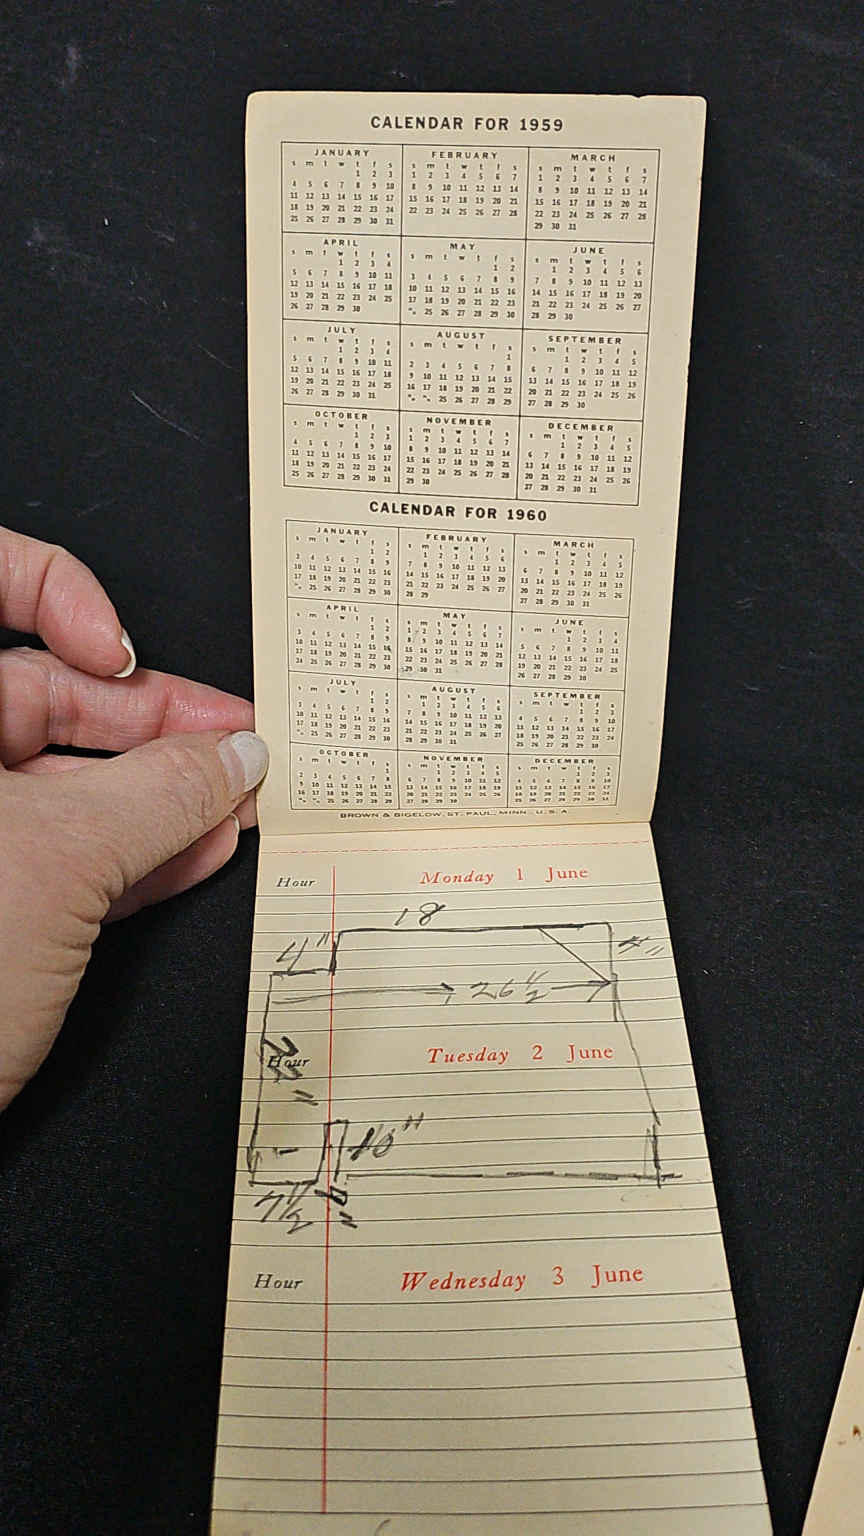 CALENDAR FOR 1959
JANUARY
s m t w t f s
1 2 3
4 5 6 7 8 9 10
11 12 13 14 15 16 17
18 19 20 21 22 23 24
25 26 27 28 29 30 31
FEBRUARY
s m t w t f s
1 2 3 4 5 6 7
8 9 10 11 12 13 14
15 16 17 18 19 20 21
22 23 24 25 26 27 28
MARCH
s m t w t f s
1 2 3 4 5 6 7
8 9 10 11 12 13 14
15 16 17 18 19 20 21
22 23 24 25 26 27 28
29 30 31
APRIL
s m t w t f s
1 2 3 4
5 6 7 8 9 10 11
12 13 14 15 16 17 18
19 20 21 22 23 24 25
26 27 28 29 30
MAY
s m t w t f s
1 2
3 4 5 6 7 8 9
10 11 12 13 14 15 16
17 18 19 20 21 22 23
25 26 27 28 29 30
JUNE
s m t w t f s
1 2 3 4 5 6
7 8 9 10 11 12 13
14 15 16 17 18 19 20
21 22 23 24 25 26 27
28 29 30
JULY
s m t w t f s
1 2 3 4
5 6 7 8 9 10 11
12 13 14 15 16 17 18
19 20 21 22 23 24 25
26 27 28 29 30 31
AUGUST
s m t w t f s
1
2 3 4 5 6 7 8
9 10 11 12 13 14 15
16 17 18 19 20 21 22
25 26 27 28 29
SEPTEMBER
s m t w t f s
1 2 3 4 5
6 7 8 9 10 11 12
13 14 15 16 17 18 19
20 21 22 23 24 25 26
27 28 29 30
OCTOBER
s m t w t f s
1 2 3
4 5 6 7 8 9 10
11 12 13 14 15 16 17
18 19 20 21 22 23 24
25 26 27 28 29 30 31
NOVEMBER
s m t w t f s
1 2 3 4 5 6 7
8 9 10 11 12 13 14
15 16 17 18 19 20 21
22 23 24 25 26 27 28
29 30
DECEMBER
s m t w t f s
1 2 3 4 5
6 7 8 9 10 11 12
13 14 15 16 17 18 19
20 21 22 23 24 25 26
27 28 29 30 31
CALENDAR FOR 1960
JANUARY
s m t w t f s
1 2
3 4 5 6 7 8 9
10 11 12 13 14 15 16
17 18 19 20 21 22 23
25 26 27 28 29 30
FEBRUARY
s m t w t f s
1 2 3 4 5 6
7 8 9 10 11 12 13
14 15 16 17 18 19 20
21 22 23 24 25 26 27
28 29
MARCH
s m t w t f s
1 2 3 4 5
6 7 8 9 10 11 12
13 14 15 16 17 18 19
20 21 22 23 24 25 26
27 28 29 30 31
APRIL
s m t w t f s
1 2
3 4 5 6 7 8 9
10 11 12 13 14 15 16
17 18 19 20 21 22 23
24 25 26 27 28 29 30
MAY
s m t w t f s
1 2 3 4 5 6 7
8 9 10 11 12 13 14
15 16 17 18 19 20 21
22 23 24 25 26 27 28
29 30 31
JUNE
s m t w t f s
1 2 3 4
5 6 7 8 9 10 11
12 13 14 15 16 17 18
19 20 21 22 23 24 25
26 27 28 29 30
JULY
s m t w t f s
1 2
3 4 5 6 7 8 9
10 11 12 13 14 15 16
17 18 19 20 21 22 23
25 26 27 28 29 30
AUGUST
s m t w t f s
1 2 3 4 5 6
7 8 9 10 11 12 13
14 15 16 17 18 19 20
21 22 23 24 25 26 27
28 29 30 31
SEPTEMBER
s m t w t f s
1 2 3
4 5 6 7 8 9 10
11 12 13 14 15 16 17
18 19 20 21 22 23 24
25 26 27 28 29 30
OCTOBER
s m t w t f s
1
2 3 4 5 6 7 8
9 10 11 12 13 14 15
16 17 18 19 20 21 22
25 26 27 28 29
NOVEMBER
s m t w t f s
1 2 3 4 5
6 7 8 9 10 11 12
13 14 15 16 17 18 19
20 21 22 23 24 25 26
27 28 29 30
DECEMBER
s m t w t f s
1 2 3
4 5 6 7 8 9 10
11 12 13 14 15 16 17
18 19 20 21 22 23 24
25 26 27 28 29 30 31
BROWN & BIGELOW, ST. PAUL, MINN., U.S.A.
Hour Monday 1 June
18
4" 4"
26 1/2
Hour Tuesday 2 June
22"
10"
7 1/2 9"
Hour Wednesday 3 June